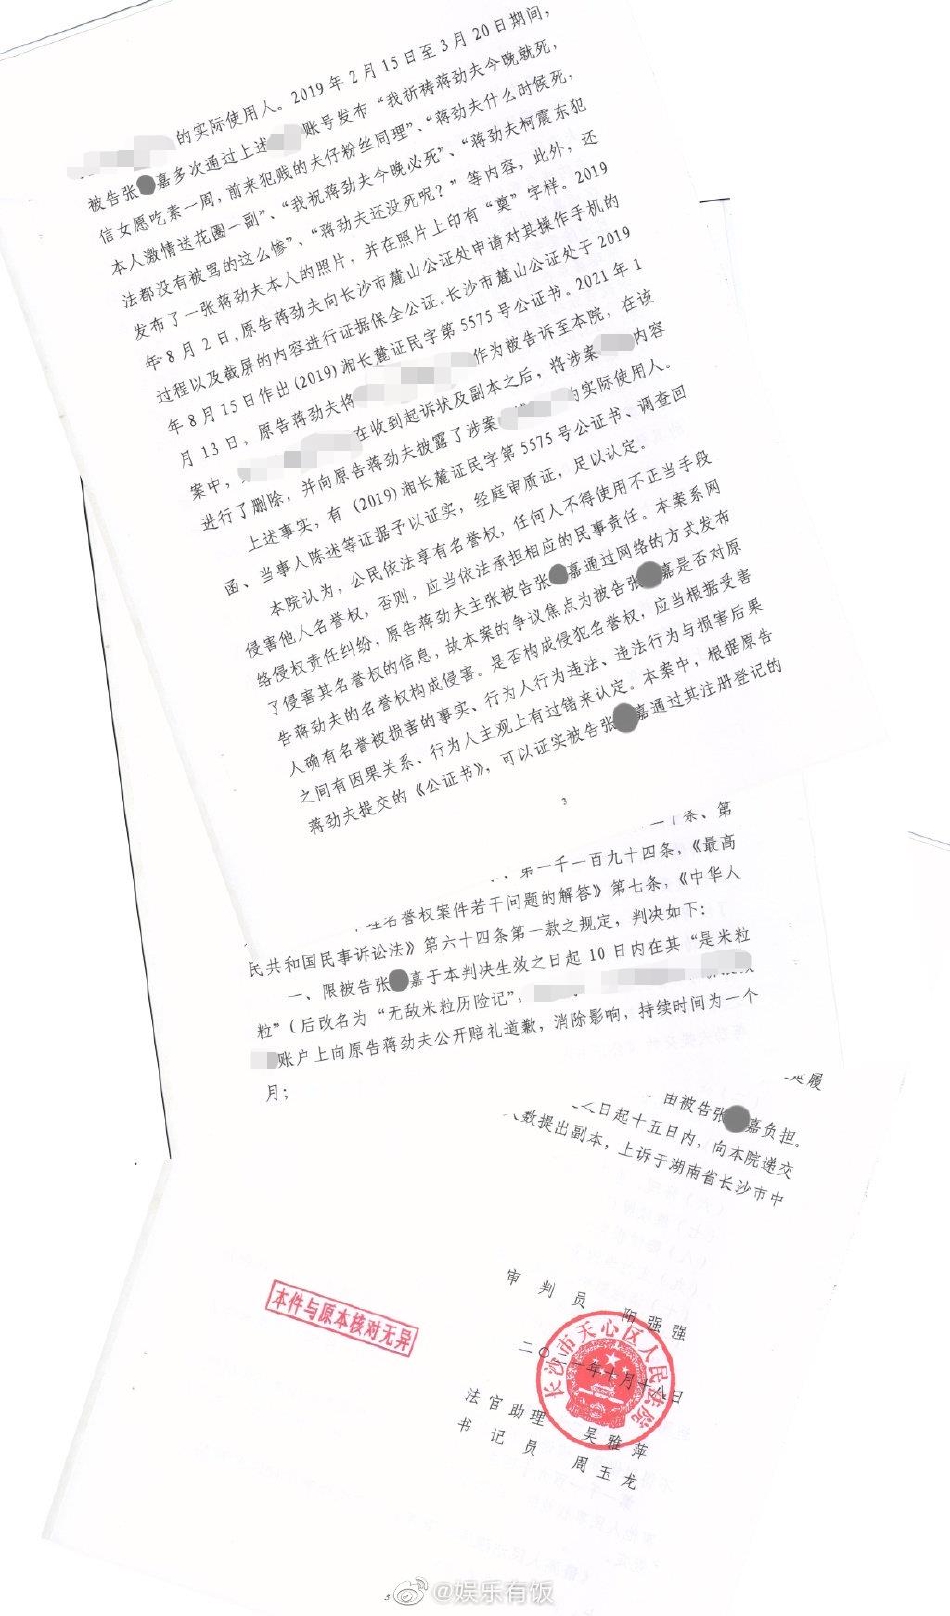 的实际使用人。2019年2月15日至3月20日期间,
被告张 嘉多次通过上述 账号发布“我祈祷蒋劲夫今晚就死,
信女愿吃素一周,前来犯贱的夫仔粉丝同理”、“蒋劲夫什么时候死,
本人激情送花圈一副”、“我祝蒋劲夫今晚必死”、“蒋劲夫柯震东犯
法都没有被骂的这么惨”、“蒋劲夫还没死呢?”等内容,此外,还
发布了一张蒋劲夫本人的照片,并在照片上印有“奠”字样。2019
年8月2日,原告蒋劲夫向长沙市麓山公证处申请对其操作手机的
过程以及截屏的内容进行证据保全公证,长沙市麓山公证处于2019
年8月15日作出(2019)湘长麓证民字第5575号公证书。2021年1
月13日,原告蒋劲夫将 作为被告诉至本院,在该
案中, 在收到起诉状及副本之后,将涉案 内容
进行了删除,并向原告蒋劲夫披露了涉案 的实际使用人。
上述事实,有(2019)湘长麓证民字第5575号公证书、调查回
函、当事人陈述等证据予以证实,经庭审质证,足以认定。
本院认为,公民依法享有名誉权,任何人不得使用不正当手段
侵害他人名誉权,否则,应当依法承担相应的民事责任。本案系网
络侵权责任纠纷,原告蒋劲夫主张被告张 嘉通过网络的方式发布
了侵害其名誉权的信息,故本案的争议焦点为被告张 嘉是否对原
告蒋劲夫的名誉权构成侵害。是否构成侵犯名誉权,应当根据受害
人确有名誉被损害的事实、行为人行为违法、违法行为与损害后果
之间有因果关系、行为人主观上有过错来认定。本案中,根据原告
蒋劲夫提交的《公证书》,可以证实被告张 嘉通过其注册登记的
3
条、第
一千一百九十四条,《最高
名誉权案件若干问题的解答》第七条,《中华人
民共和国民事诉讼法》第六十四条第一款之规定,判决如下:
一、限被告张 嘉于本判决生效之日起10日内在其“是米粒
粒”(后改名为“无敌米粒历险记”,
账户上向原告蒋劲夫公开赔礼道歉,消除影响,持续时间为一个
月;
履
由被告张 嘉负担。
之日起十五日内,向本院递交
数提出副本,上诉于湖南省长沙市中
审判员 阳强强
二〇二一年十月十八日
法官助理 吴雅萍
书记员 周玉龙
本件与原本核对无异
长沙市天心区人民法院
5
@娱乐有饭